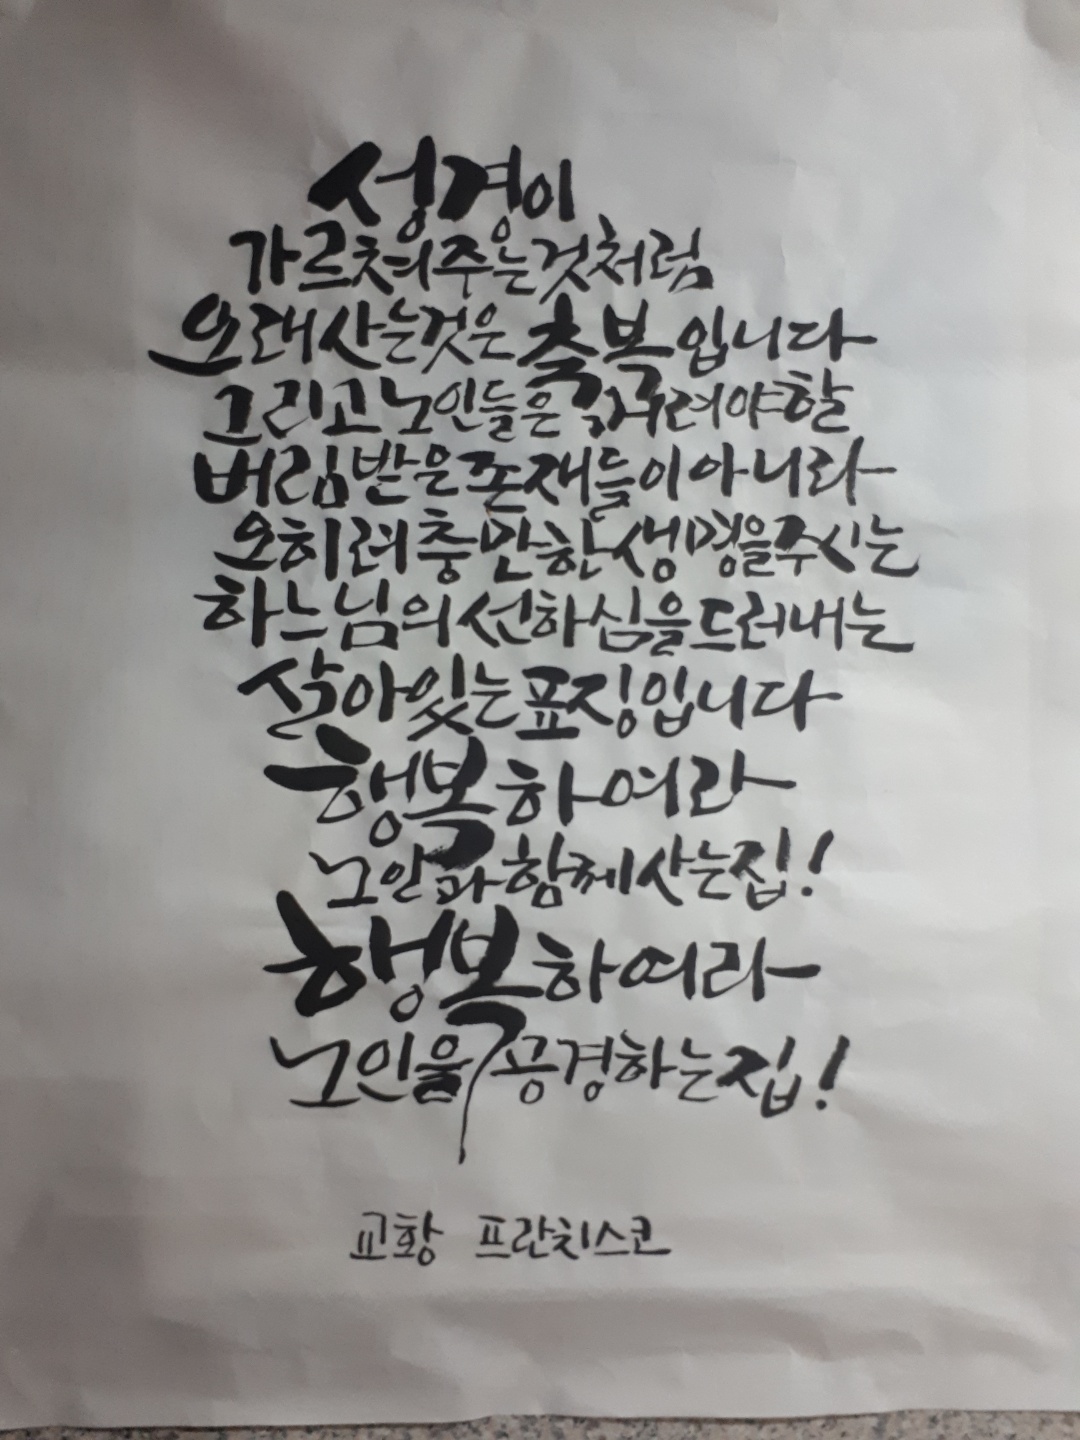 성경이
가르쳐주는것처럼
오래사는것은 축복입니다
그리고 노인들은 꺼려야할
버림받은존재들이아니라
오히려충만한생명을주시는
하느님의선하심을드러내는
살아있는표징입니다
행복하여라
노인과함께사는집!
행복하여라
노인을 공경하는집!
교황 프란치스코